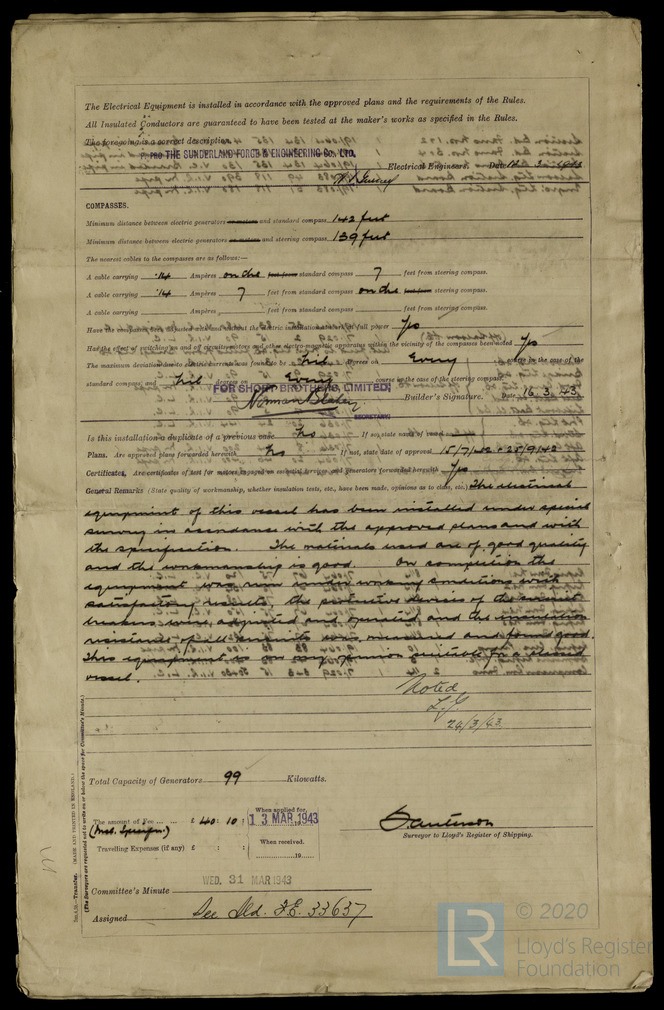 The Electrical Equipment is installed in accordance with the approved plans and the requirements of the Rules.
All Insulated Conductors are guaranteed to have been tested at the maker's works as specified in the Rules.
The foregoing is a correct description,
PRO THE SUNDERLAND FORGE & ENGINEERING CO., LTD.
Electrical Engineers. Date
COMPASSES.
Minimum distance between electric generators or motors and standard compass 142 feet
Minimum distance between electric generators or motors and steering compass 139 feet
The nearest cables to the compasses are as follows:—
A cable carrying .14 Ampères on the feet from standard compass 7 feet from steering compass.
A cable carrying .14 Ampères 7 feet from standard compass on the feet from steering compass.
A cable carrying Ampères feet from standard compass feet from steering compass.
Have the compasses been adjusted with and without the electric installation at work at full power Yes
Has the effect of switching on and off circuits, motors and other electro-magnetic apparatus within the vicinity of the compasses been noted Yes
The maximum deviation due to electric currents was found to be Nil degrees on Every course in the case of the
standard compass, and Nil degrees on Every course in the case of the steering compass.
FOR SHORT BROTHERS, LIMITED,
SECRETARY.
Builder's Signature. Date 16.3.43.
Is this installation a duplicate of a previous case No If so, state name of vessel
Plans. Are approved plans forwarded herewith No If not, state date of approval 15/7/42 - 25/9/42
Certificates. Are certificates of test for motors engaged on essential services and generators forwarded herewith Yes
General Remarks (State quality of workmanship, whether insulation tests, etc., have been made, opinions as to class, etc.) The electrical
equipment of this vessel has been installed under special
survey in accordance with the approved plans and with
the specification. The materials used are of good quality
and the workmanship is good. On completion the
equipment was run under working conditions with
satisfactory results, the protective devices of the circuit
breakers were adjusted and operated, and the insulation
resistance of all circuits was measured and found good.
This equipment is in my opinion suitable for a classed
vessel.
Noted
24/3/43
Total Capacity of Generators 99 Kilowatts.
The amount of Fee ... ... £ 40 : 10 :
When applied for,
13 MAR 1943
Travelling Expenses (if any) £ : :
When received.
19
Surveyor to Lloyd's Register of Shipping.
WED. 31 MAR 1943
Committee's Minute
Assigned See Sld. F.E. 33637
Transfer. (MADE AND PRINTED IN ENGLAND.)
(The Surveyors are requested not to write on or below the space for Committee's Minute.)
LR
© 2020
Lloyd's Register
Foundation